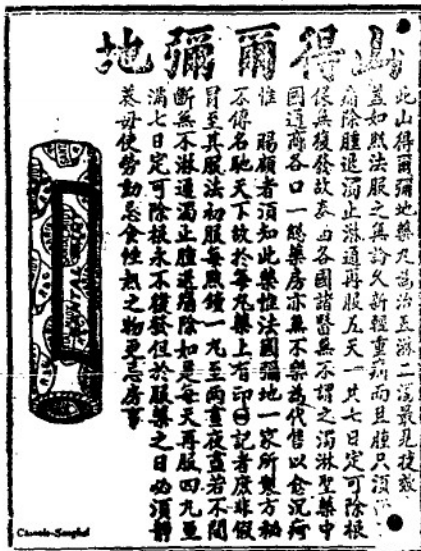 山得爾彌地
此山得爾彌地藥丸爲治五淋二濁最見捷效
蓋如照法服之無論久新輕重痛而且腫只須
痛除腫退濁止淋通再服五天一共七日定可除根
保無復發故泰西各國諸醫無不謂之濁淋聖藥中
國通商各口一總藥房亦無不樂爲代售以愈沉疴
惟 賜顧者須知此藥惟法國彌地一家所製方秘
不傳名馳天下故於每丸藥上有印 記者庶非假
冒至其服法初服每點鐘一丸至兩晝夜盡若不間
斷無不淋通濁止腫退痛除如是每天再服四丸至
滿七日定可除根永不復發但於服藥之日必須靜
養毋使勞動忌食性熱之物更忌房事
SANTAL